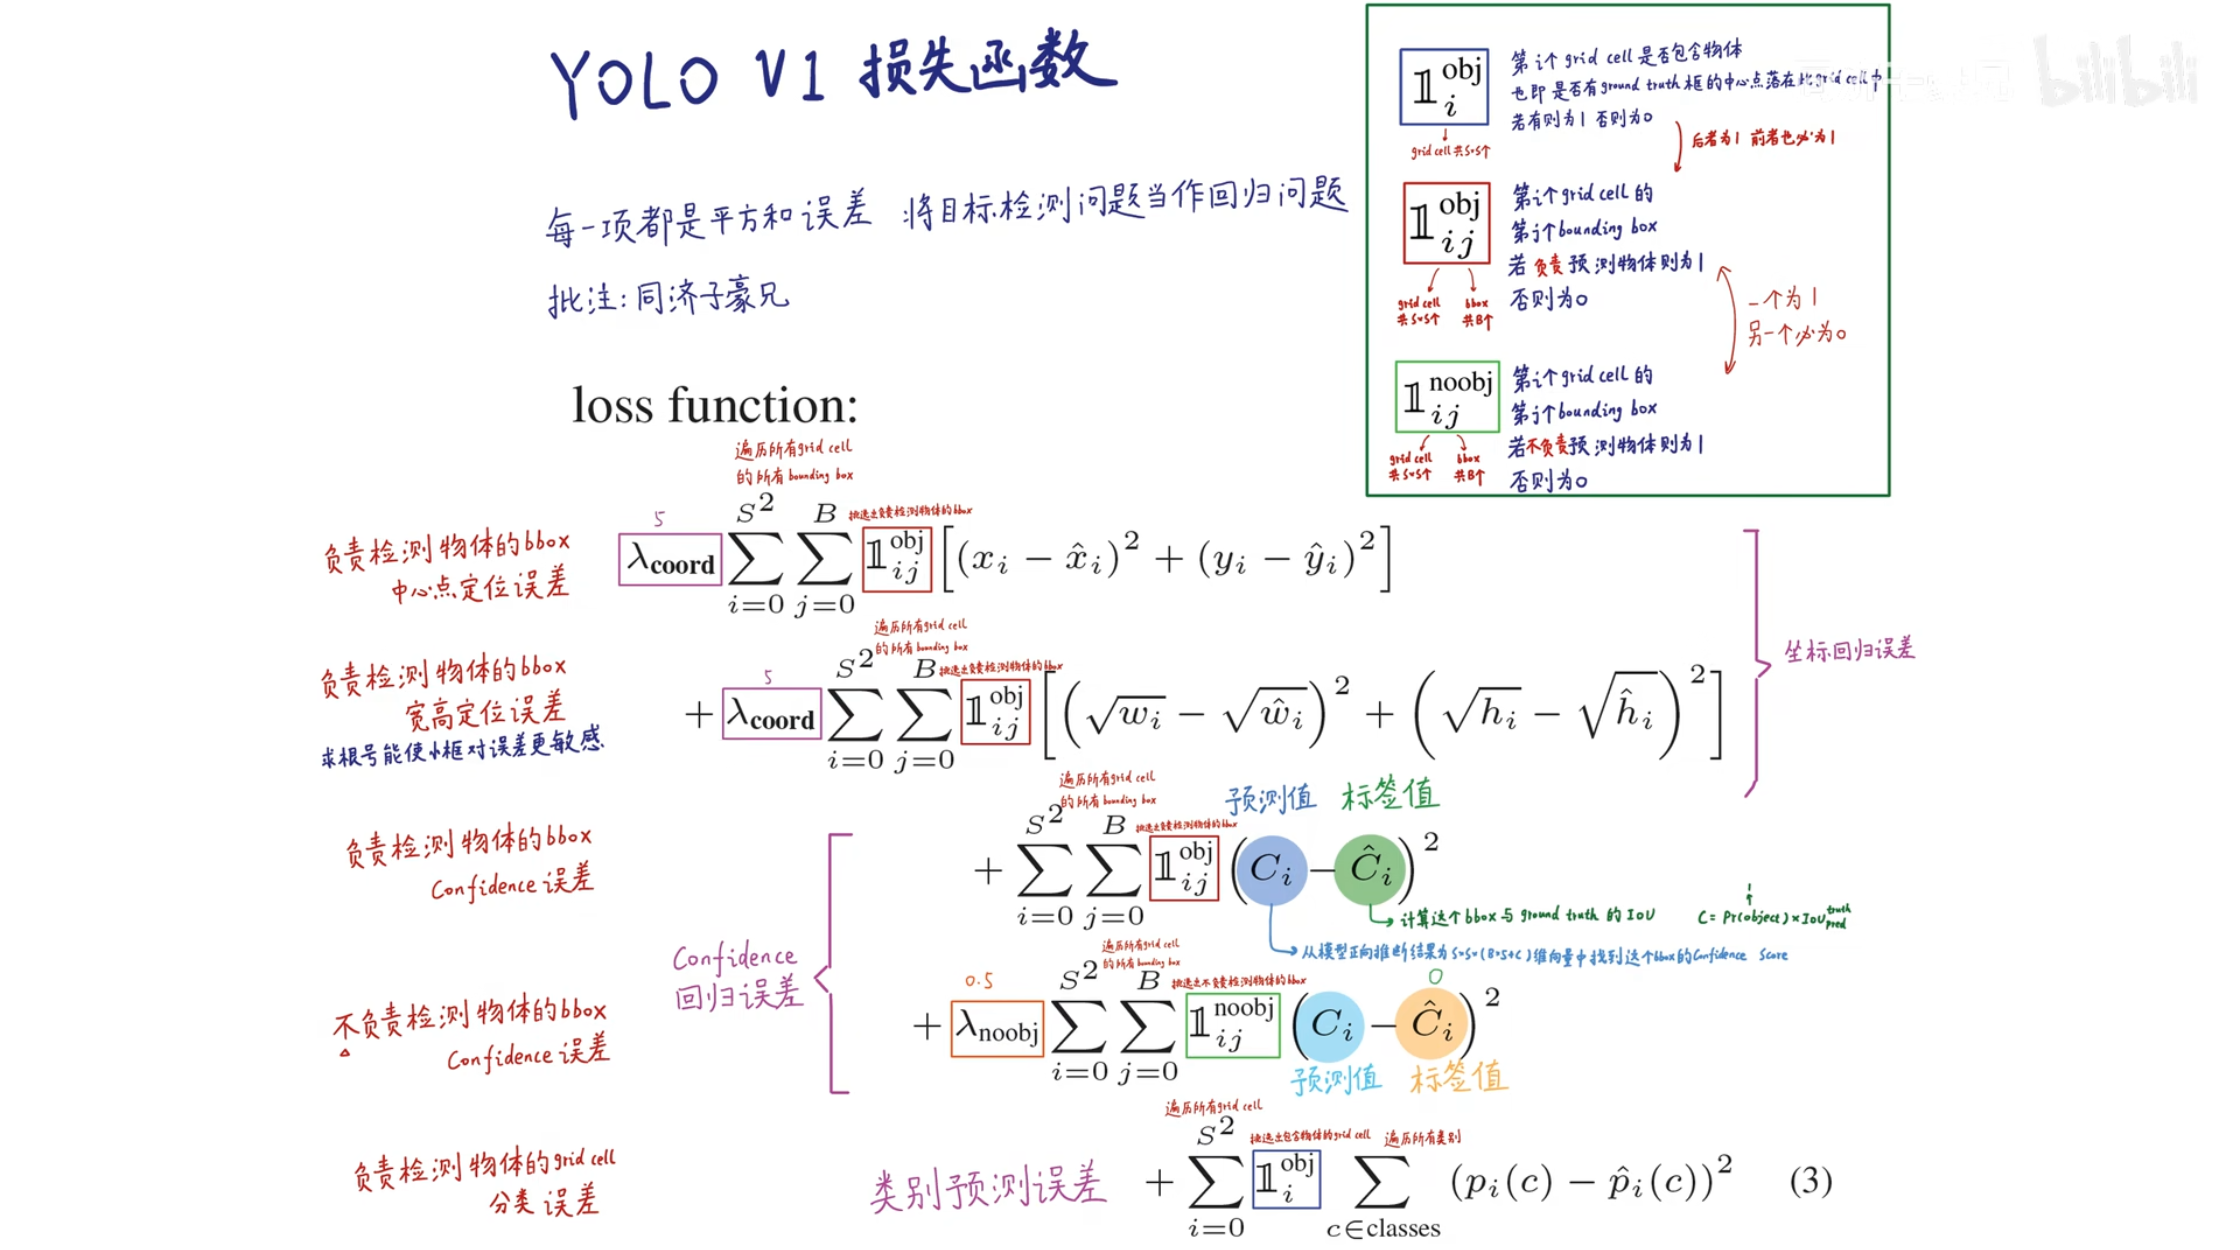 YOLO V1 损失函数
每一项都是平方和误差 将目标检测问题当作回归问题
批注:同济子豪兄
bilibili
𝟙_i^obj
grid cell共S×S个
第i个grid cell是否包含物体
也即是否有ground truth框的中心点落在此grid cell中
若有则为1 否则为0
后者为1 前者也必为1
𝟙_ij^obj
grid cell 共S×S个
bbox 共B个
第i个grid cell的
第j个bounding box
若负责预测物体则为1
否则为0
一个为1
另一个必为0
𝟙_ij^noobj
grid cell 共S×S个
bbox 共B个
第i个grid cell的
第j个bounding box
若不负责预测物体则为1
否则为0
loss function:
遍历所有grid cell
的所有bounding box
挑选出负责检测物体的bbox
负责检测物体的bbox
中心点定位误差
5
λ_coord ∑_{i=0}^{S^2} ∑_{j=0}^{B} 𝟙_ij^obj [(x_i − x̂_i)^2 + (y_i − ŷ_i)^2]
坐标回归误差
遍历所有grid cell
的所有bounding box
挑选出负责检测物体的bbox
负责检测物体的bbox
宽高定位误差
求根号能使小框对误差更敏感
5
+ λ_coord ∑_{i=0}^{S^2} ∑_{j=0}^{B} 𝟙_ij^obj [(√w_i − √ŵ_i)^2 + (√h_i − √ĥ_i)^2]
遍历所有grid cell
的所有bounding box
挑选出负责检测物体的bbox
预测值 标签值
负责检测物体的bbox
Confidence 误差
+ ∑_{i=0}^{S^2} ∑_{j=0}^{B} 𝟙_ij^obj (C_i − Ĉ_i)^2
计算这个bbox与ground truth的IoU
1
C = Pr(object) × IoU^truth_pred
从模型正向推断结果为S×S×(B×5+C)维向量中找到这个bbox的Confidence Score
Confidence
回归误差
遍历所有grid cell
的所有bounding box
挑选出不负责检测物体的bbox
不负责检测物体的bbox
Confidence 误差
0.5
0
+ λ_noobj ∑_{i=0}^{S^2} ∑_{j=0}^{B} 𝟙_ij^noobj (C_i − Ĉ_i)^2
预测值 标签值
遍历所有grid cell
挑选出包含物体的grid cell
遍历所有类别
负责检测物体的grid cell
分类误差
类别预测误差
+ ∑_{i=0}^{S^2} 𝟙_i^obj ∑_{c∈classes} (p_i(c) − p̂_i(c))^2 (3)